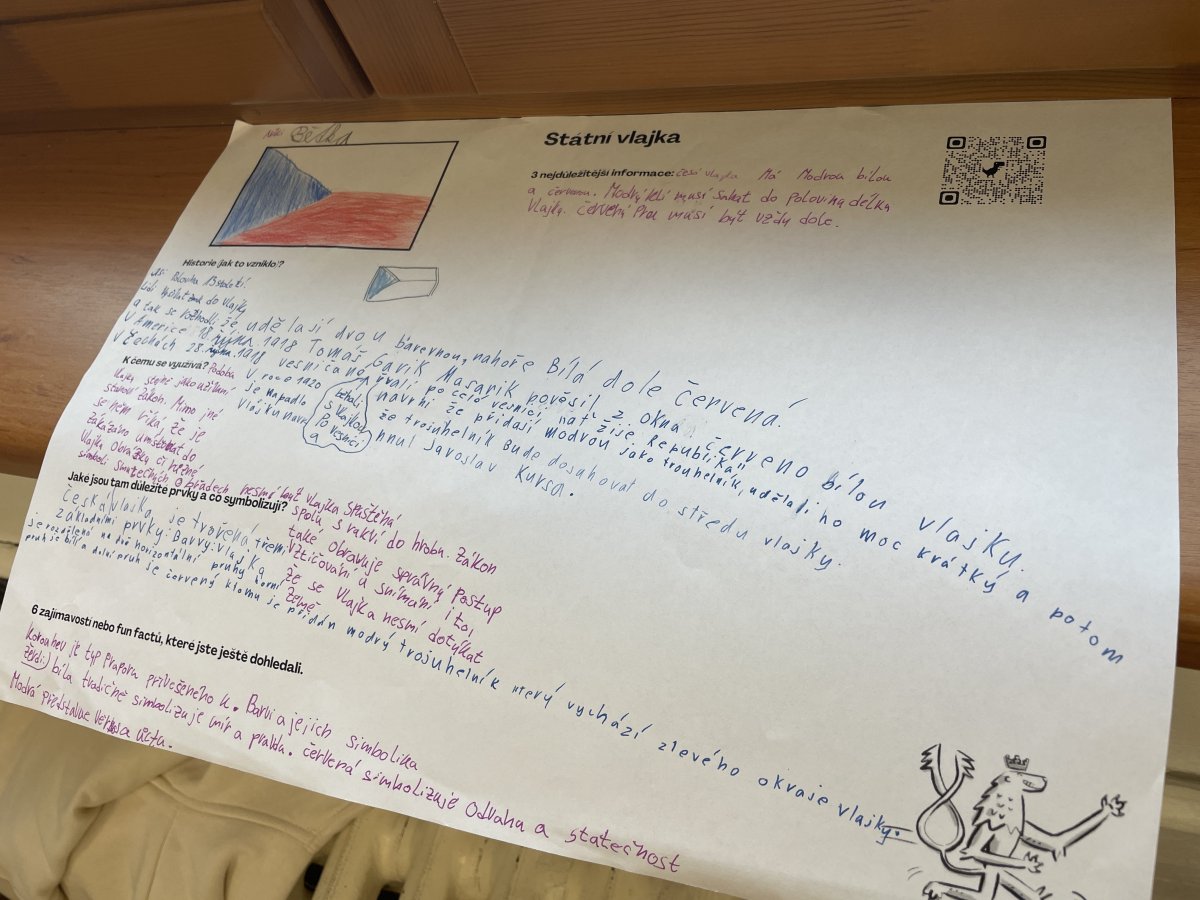 Státní vlajka
3 nejdůležitější informace: česi vlajka Má Modrou bílou
a červenou. Modrý musí sahat do polovina délky
vlajky. červený Pru musí být vždy dole.
Historie (jak to vzniklo)?
Polovina 13 století.
lidi do vlajky
a tak se rozhodli že, udělasí dvou barevnou, nahoře Bílá dole červená.
V Americe 18. října 1918 Tomáš Garik Masarik pověsil z okna červeno bílou vlajku.
V Čechách 28. října 1918 vesničané řvali po celé vesnici, nať žije Republika!!
V roce 1920 navrhi že přidají modvou jako trouhelník, udělali ho moc krátký a potom
je napadlo že trosuhelník Bude dosahovat do středu vlajky.
Vlajku navr hnul Jaroslav Kursa.
běhali
s vlajkou
Po vesnici
a
K čemu se využívá? Podoba
vlajky stejně jako užívání
stanoví zákon. Mimo jné
se něm říká, že je
zakázáno umístovat do
vlajky Obrázky či jiné
simboli smutečních obřadech nesmí být vlajka Spuštěná
spolu s rakví do hrobu. Zákon
také Obravuje správný Postup
vztičování a snímání i to,
že se vlajka nesmí dotýkat
země.
Jaké jsou tam důležité prvky a co symbolizují?
Česká vlajka je tvořená třemi
základními prvky. Barvy: vlajka
je rozdělená na dvě horizontální pruhy horní
pruh je bílí a dolní pruh je červený ktomu je přidán modrý trojuhelník který vychází zlevého okraje vlajky.
6 zajímavostí nebo fun factů, které jste ještě dohledali.
Korouhev je typ praporu přivešeného k. Barvi a jejich simbolika
žerdi) bíla tradičně simbolizuje mír a pravdu. červená simbolizuje odvahu a statečnost
Modrá představuje věrnost a úctu.